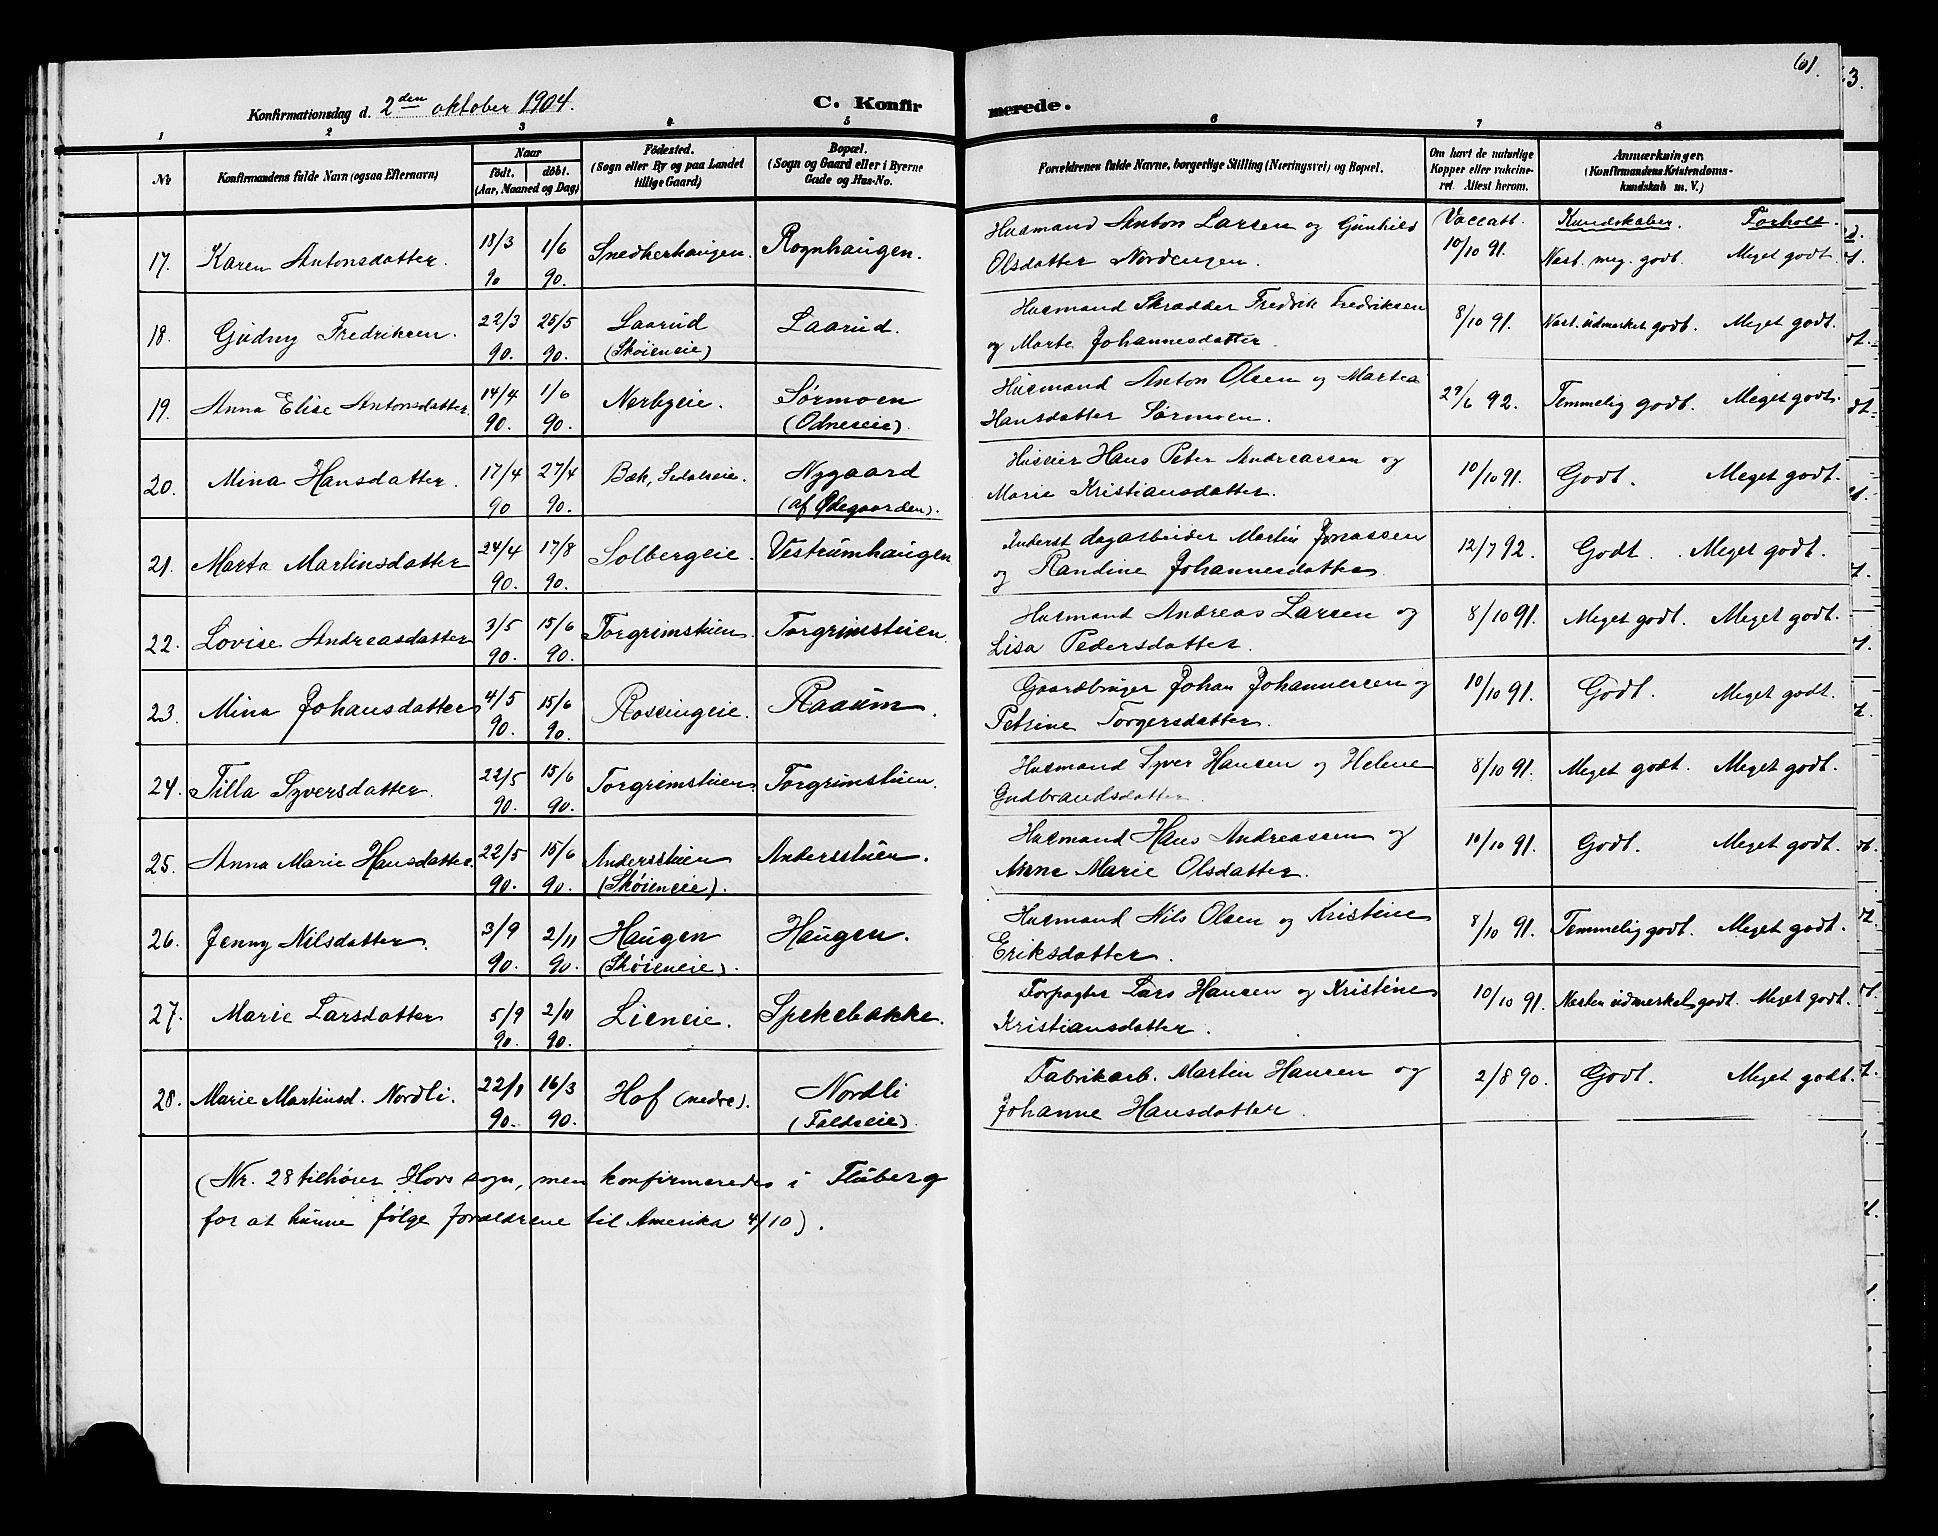 61.
Konfirmationsdag d. 2den oktober 1904.
C. Konfirmerede.
1 2 3 4 5 6 7 8
No Konfirmandens fulde Navn (ogsaa Efternavn) Naar født. døbt. (Aar, Maaned og Dag) Fødested. (Sogn eller By og paa Landet tillige Gaard) Bopæl. (Sogn og Gaard eller i Byerne Gade og Hus-No. Forældrenes fulde Navne, borgerlige Stilling (Næringsvei) og Bopæl. Om havt de naturlige Kopper eller vakcineret. Attest herom. Anmærkninger. (Konfirmandens Kristendomskundskab m. V.)
Vaccatt. Kundskaber. Forholt.
17. Karen Antonsdatter. 18/3 90 1/6 90. Snedkerhaugen. Rognhaugen. Husmand Anton Larsen og Gunhild Olsdatter Nordengen. 10/10 91. Næst. meg. godt. Meget godt.
18. Gudny Fredriksen. 22/3 90. 25/5 90. Laarud (Skøieneie) Laarud. Husmand Skrædder Fredrik Fredriksen og Marte Johannesdatter. 8/10 91. Næst. udmerket godt. Meget godt.
19. Anna Elise Antonsdatter 14/4 90. 1/6 90. Nerbyeie. Sørmoen (Odneseie). Husmand Anton Olsen og Martea Hansdatter Sørmoen. 29/6 92. Temmelig godt. Meget godt.
20. Mina Hansdatter. 17/4 90 27/4 90. Bæk, Sedalseie. Nygaard (af Ødegaarden). Huseier Hans Peter Andreassen og Marie Kristiansdatter. 10/10 91. Godt. Meget godt.
21. Marta Martinsdatter 24/4 90. 17/8 90. Solbergeie. Vestrumhaugen Inderst dagarbeider Martin Jonassen og Randine Johannesdatter 12/7 92. Godt. Meget godt.
22. Lovise Andreasdatter 3/5 90. 15/6 90. Torgrimstuen. Torgrimstuen. Husmand Andreas Larsen og Lisa Pedersdatter. 8/10 91. Meget godt. Meget godt.
23. Mina Johansdatter 4/5 90. 15/6 90. Rossingeie. Raaum. Gaardbruger Johan Johannessen og Petrine Torgersdatter. 10/10 91. Godt. Meget godt.
24. Tilla Syversdatter. 22/5 90. 15/6 90. Torgrimstuen Torgrimstuen. Husmand Syver Hansen og Helene Gudbrandsdatter. 8/10 91. Meget godt. Meget godt.
25. Anna Marie Hansdatter. 22/5 90. 15/6 90. Andersstuen (Skøieneie). Andersstuen. Husmand Hans Andreassen og Anne Marie Olsdatter. 10/10 91. Godt. Meget godt.
26. Jenny Nilsdatter. 3/9 90. 2/11 90. Haugen (Skøieneie). Haugen. Husmand Nils Olsen og Kristine Eriksdatter. 8/10 91. Temmelig godt. Meget godt.
27. Marie Larsdatter 5/9 90. 2/11 90. Lieneie. Spekebakke. Forpagter Lars Hansen og Kristine Kristiansdatter. 10/10 91. Næsten udmerket godt. Meget godt.
28. Marie Martinsd. Nordli. 22/1 90. 16/3 90. Hof (nedre). Nordli (Faldseie). Fabrikarb. Martin Hansen og Johanne Hansdatter. 2/8 90. Godt. Meget godt.
(Nr. 28 tilhører Hovs sogn, men konfirmeredes i Fluberg
for at kunne følge forældrene til Amerika 4/10).